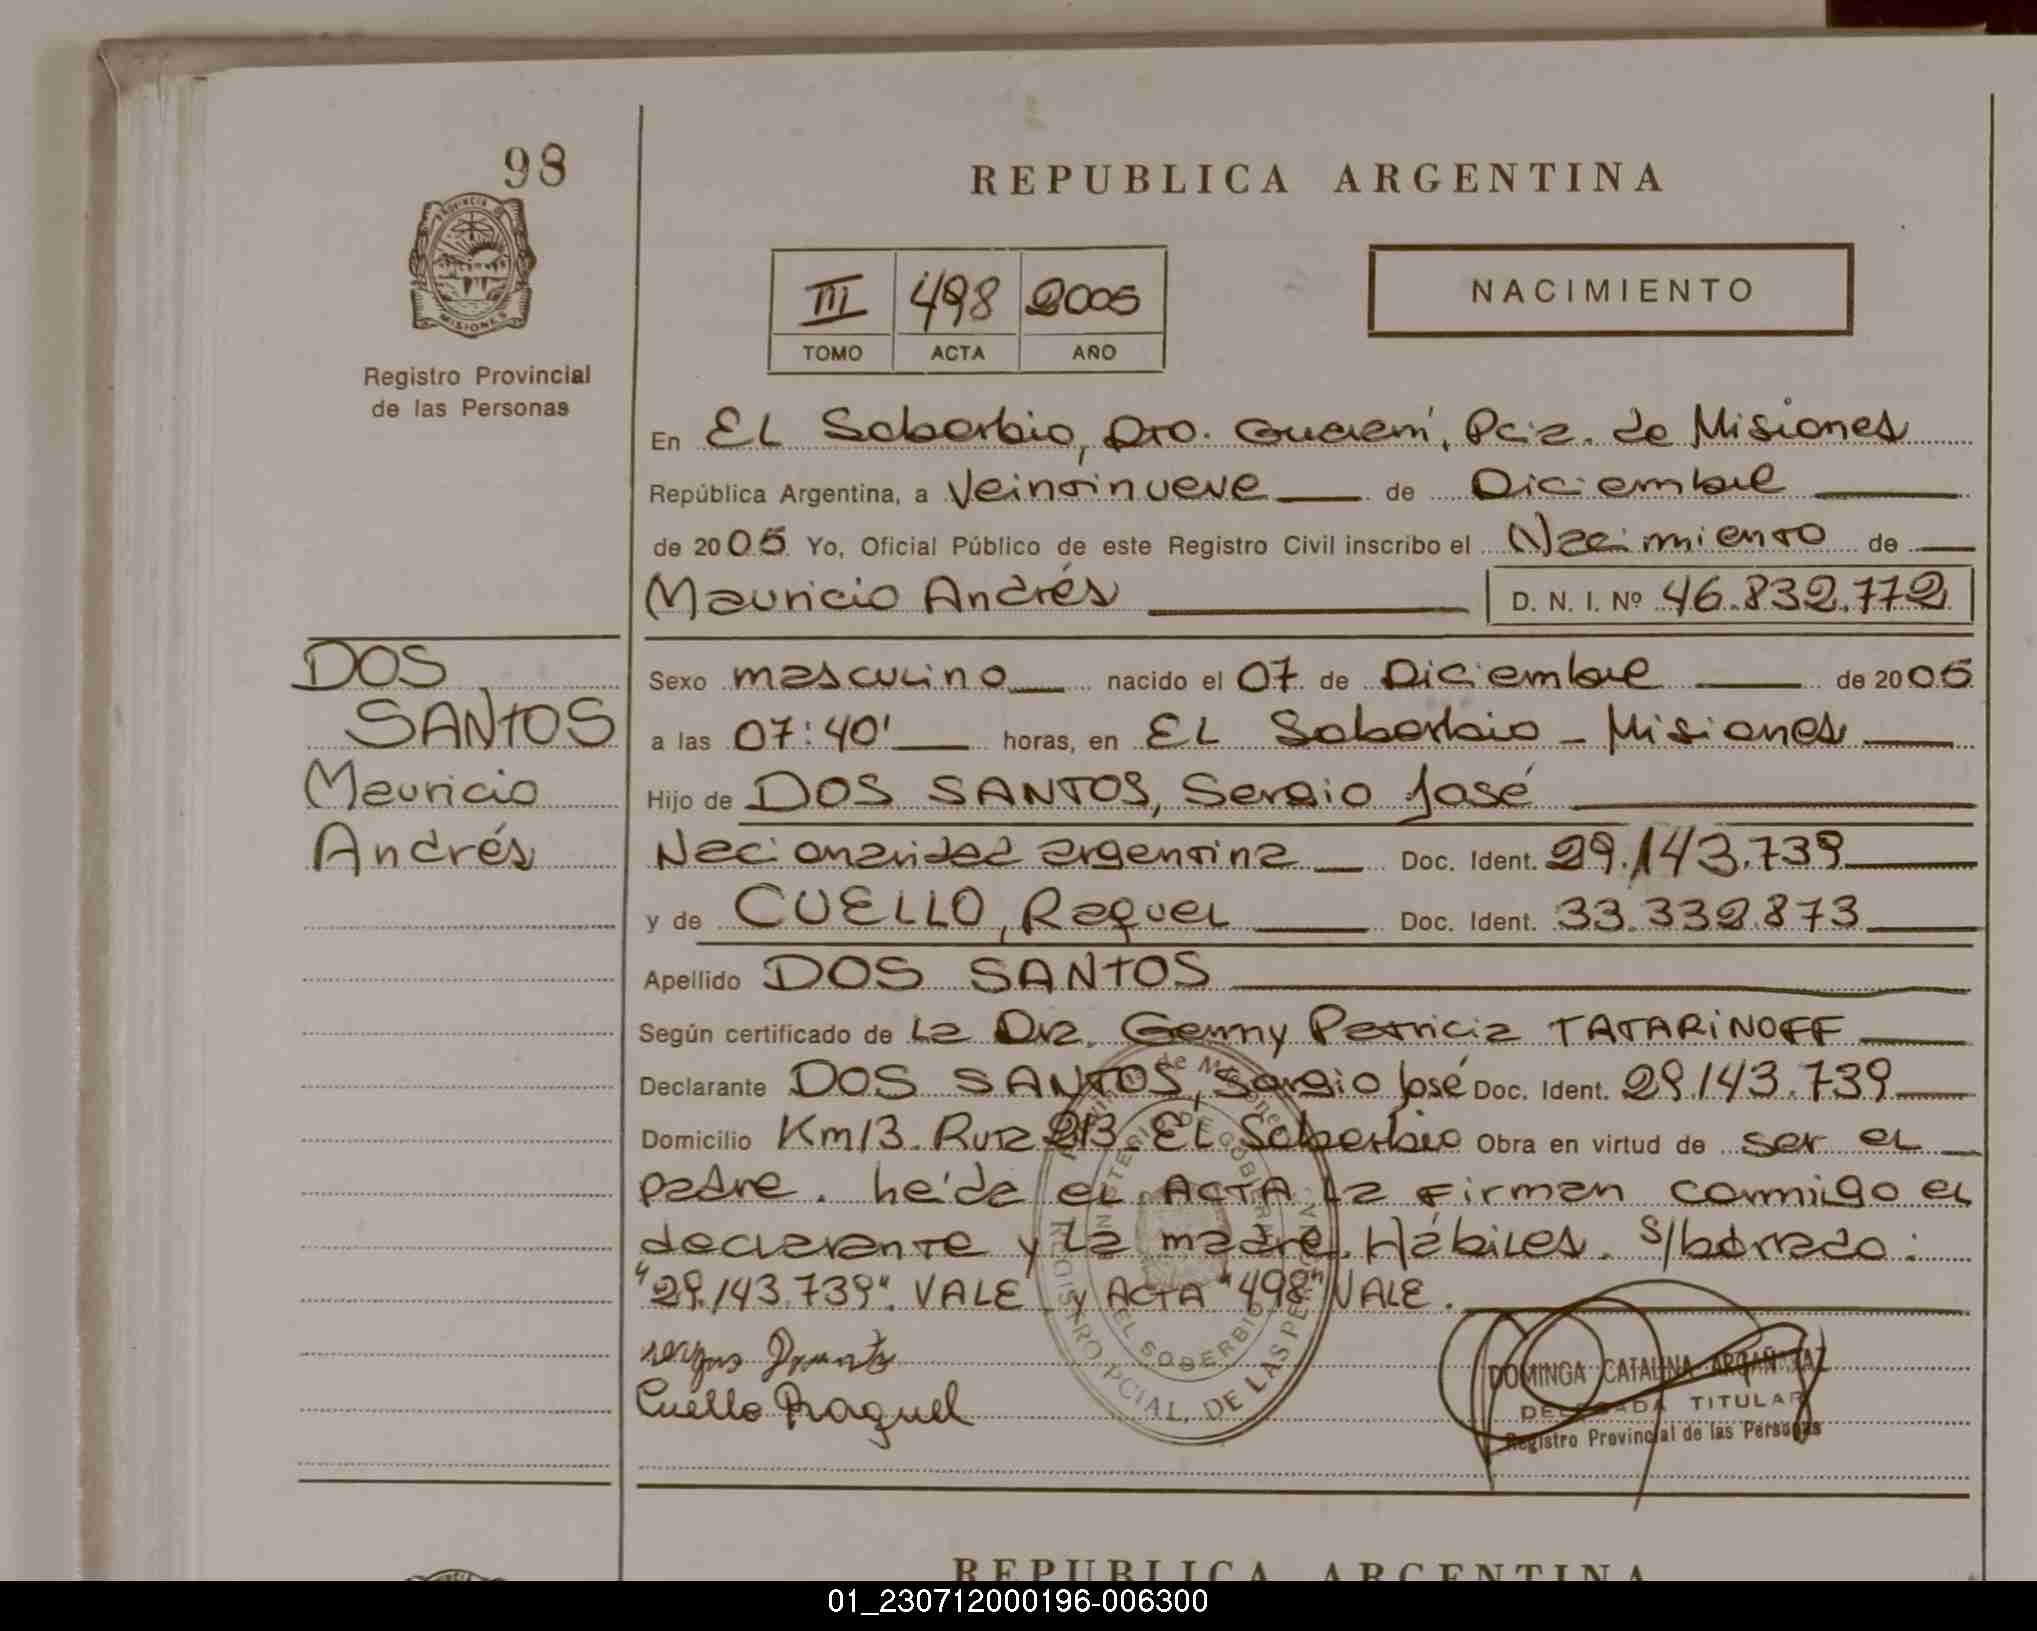 98
REPUBLICA ARGENTINA
PROVINCIA DE
MISIONES
Registro Provincial
de las Personas
III 498 2005
TOMO ACTA AÑO
NACIMIENTO
En EL Soberbio, Dto. Guaraní, Pcia. de Misiones
República Argentina, a Veintinueve de Diciembre
de 2005 Yo, Oficial Público de este Registro Civil inscribo el Nacimiento de
Mauricio Andrés D. N. I. Nº 46.832.772
DOS
SANTOS
Mauricio
Andrés
Sexo masculino nacido el 07 de Diciembre de 2005
a las 07:40' horas, en EL Soberbio - Misiones
Hijo de DOS SANTOS, Sergio José
Nacionalidad argentina Doc. Ident. 29.143.739
y de CUELLO, Raquel Doc. Ident. 33.332.873
Apellido DOS SANTOS
Según certificado de La Dra. Genny Patricia TATARINOFF
Declarante DOS SANTOS, Sergio José Doc. Ident. 29.143.739
Domicilio Km13 Ruta 213 EL Soberbio Obra en virtud de ser el
padre. Leída el ACTA la firman conmigo el
declarante y la madre. Hábiles. S/borrado:
"29.143.739". VALE y ACTA "498" VALE.
Cuello Raquel
Provincia de Misiones
MINISTERIO DE GOBIERNO
EL SOBERBIO
REGISTRO PCIAL. DE LAS PERSONAS
DOMINGA CATALINA ARGAÑARAZ
DELEGADA TITULAR
Registro Provincial de las Personas
REPUBLICA ARGENTINA
01_230712000196-006300